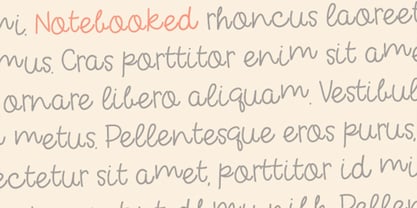 mi. Notebooked rhoncus laoreet
mus. Cras porttitor enim sit ame
ornare libero aliquam. Vestibul
metus. Pellentesque eros purus,
ectetur sit amet, porttitor id mi